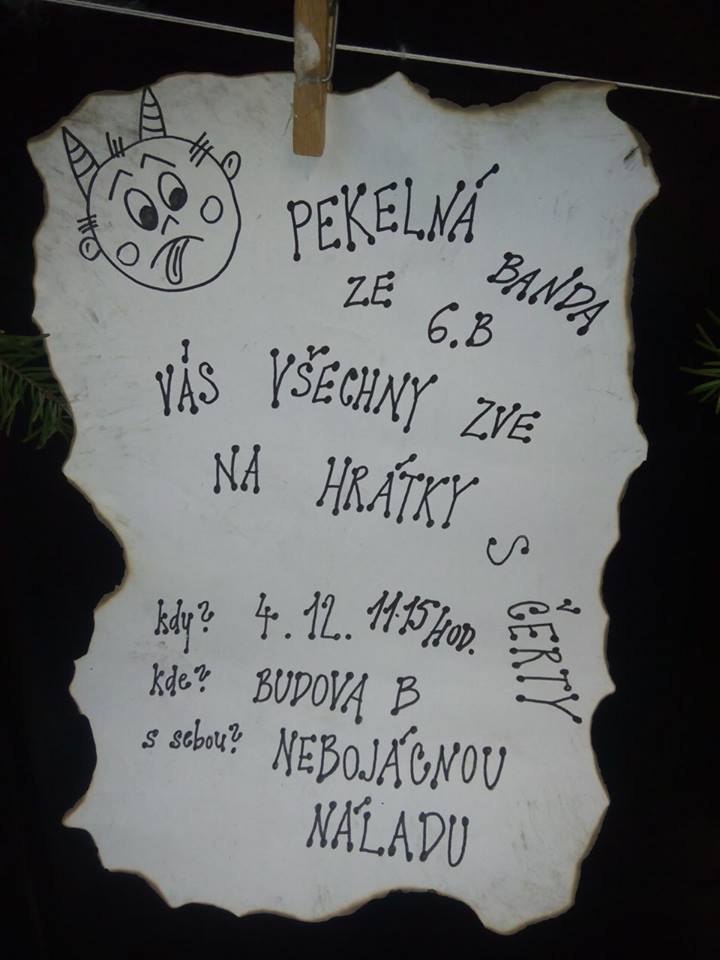 PEKELNÁ
BANDA
ZE 6.B
VÁS VŠECHNY ZVE
NA HRÁTKY
S
ČERTY
kdy? 4.12. 11.15 HOD.
kde? BUDOVA B
s sebou? NEBOJÁCNOU
NÁLADU